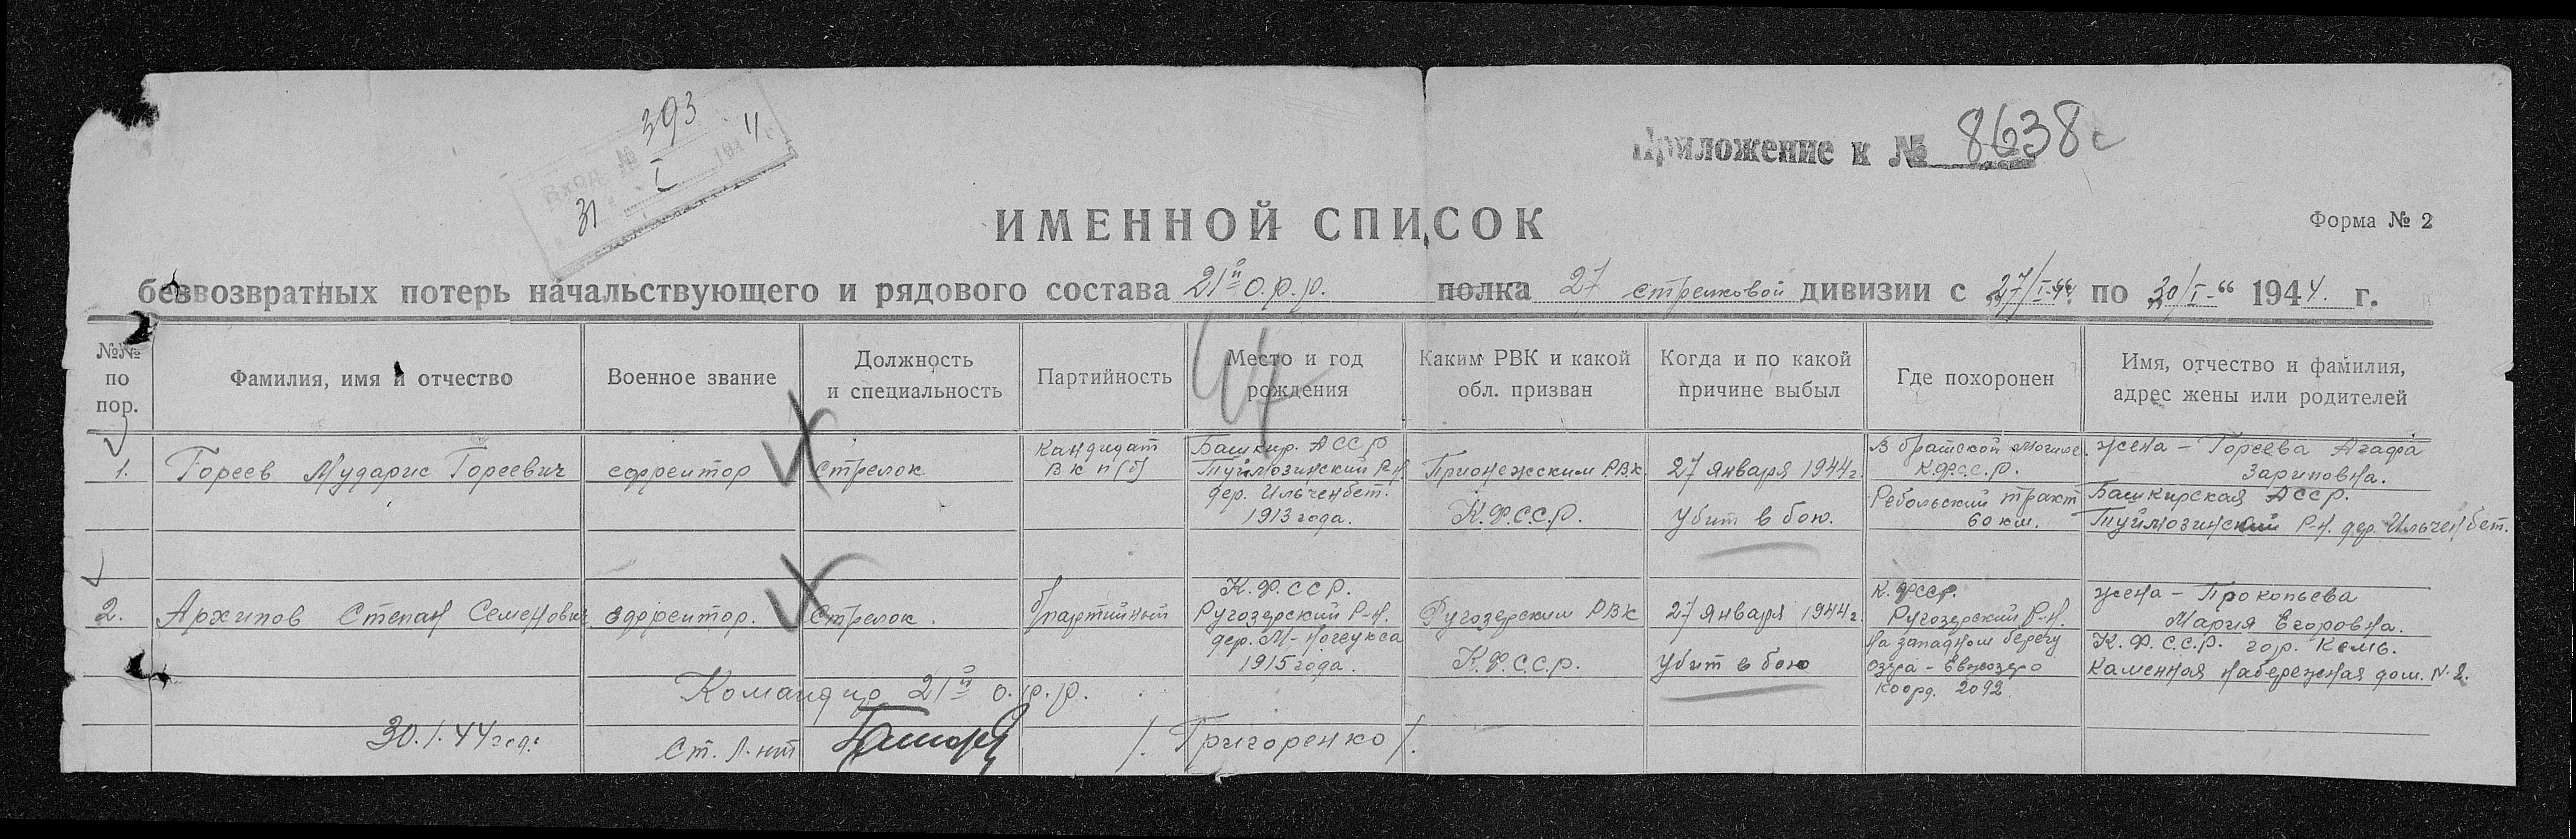 Вход. № 393
31 I 194 4.
Приложение к № 8638с
ИМЕННОЙ СПИСОК
Форма № 2
безвозвратных потерь начальствующего и рядового состава 21й о.р.р. полка 27 стрелковой дивизии с 27/I-44 по 30/I-" 1944. г.
№№ по пор.
Фамилия, имя и отчество
Военное звание
Должность и специальность
Партийность
Место и год рождения
Каким РВК и какой обл. призван
Когда и по какой причине выбыл
Где похоронен
Имя, отчество и фамилия, адрес жены или родителей
44
1.
Гореев Мударис Гореевич
ефрейтор
Стрелок
Кандидат
ВКП(б)
Башкир. АССР
Туймозинский Р-Н.
дер. Ильченбет.
1913 года.
Прионежским РВК.
К.Ф.С.С.Р.
27 января 1944г.
Убит в бою.
В братской могиле.
К.Ф.С.С.Р.
Ребольский тракт
60 км.
жена - Гореева Агафа
Зариповна.
Башкирская АССР.
Туймозинский Р-Н. дер. Ильченбет.
2.
Архипов Степан Семенович
Ефрейтор.
Стрелок.
б/партийный
К.Ф.ССР.
Ругозерский Р-Н.
дер. М-Ногеукса
1915 года.
Ругозерским РВК
К.Ф.С.С.Р.
27 января 1944г.
Убит в бою
К.ФССР.
Ругозерский Р-Н.
На западном берегу
озера - Евжозеро
коорд. 2092.
жена - Прокопьева
Мария Егоровна.
К.Ф.С.С.Р. гор. Кемь.
Каменная набережная дом. N. 2.
Командир 21й о.р.р.
30.1.44 год.
Ст. Л-нт
/. Григоренко /.